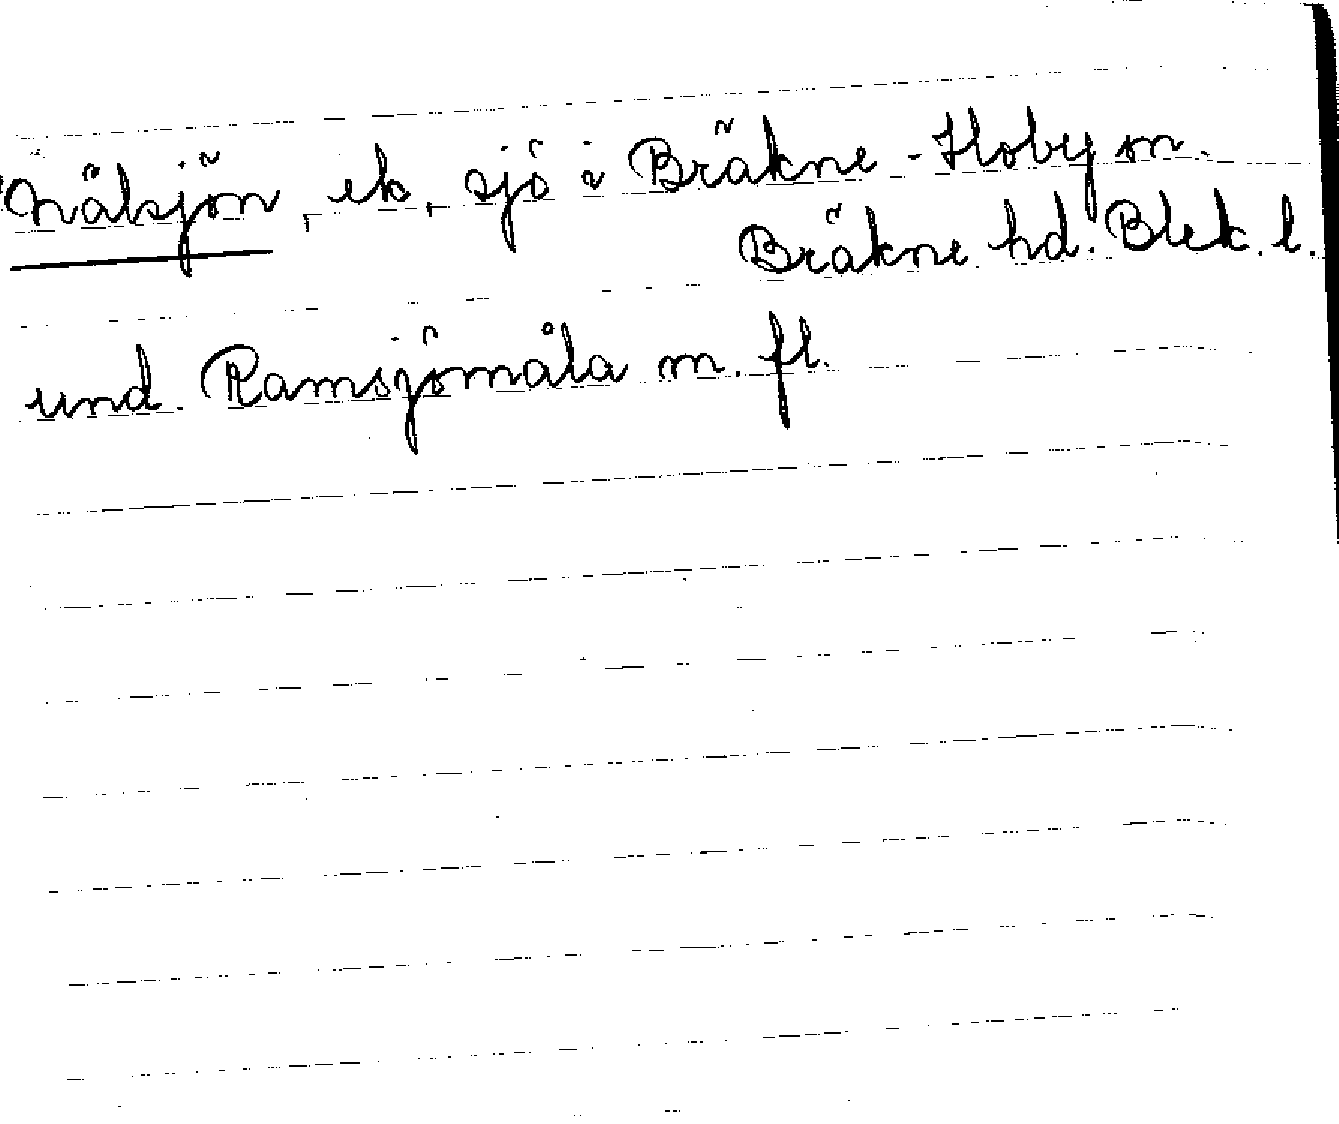 Nälsjön, ek, sjö i Bräkne-Hoby sn.
Bräkne hd. Blek. l.
und. Ramsjömåla m. fl.